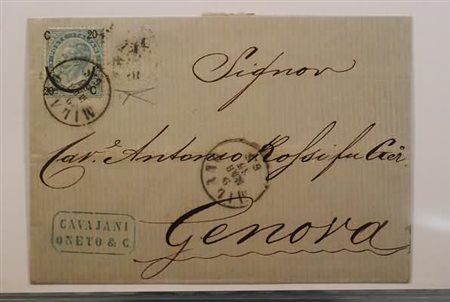 C 20
20 C
MILA
Signor
Cav. Antonio Rossi fu
MILA
Genova
CAVAJANI
ONETO & C.